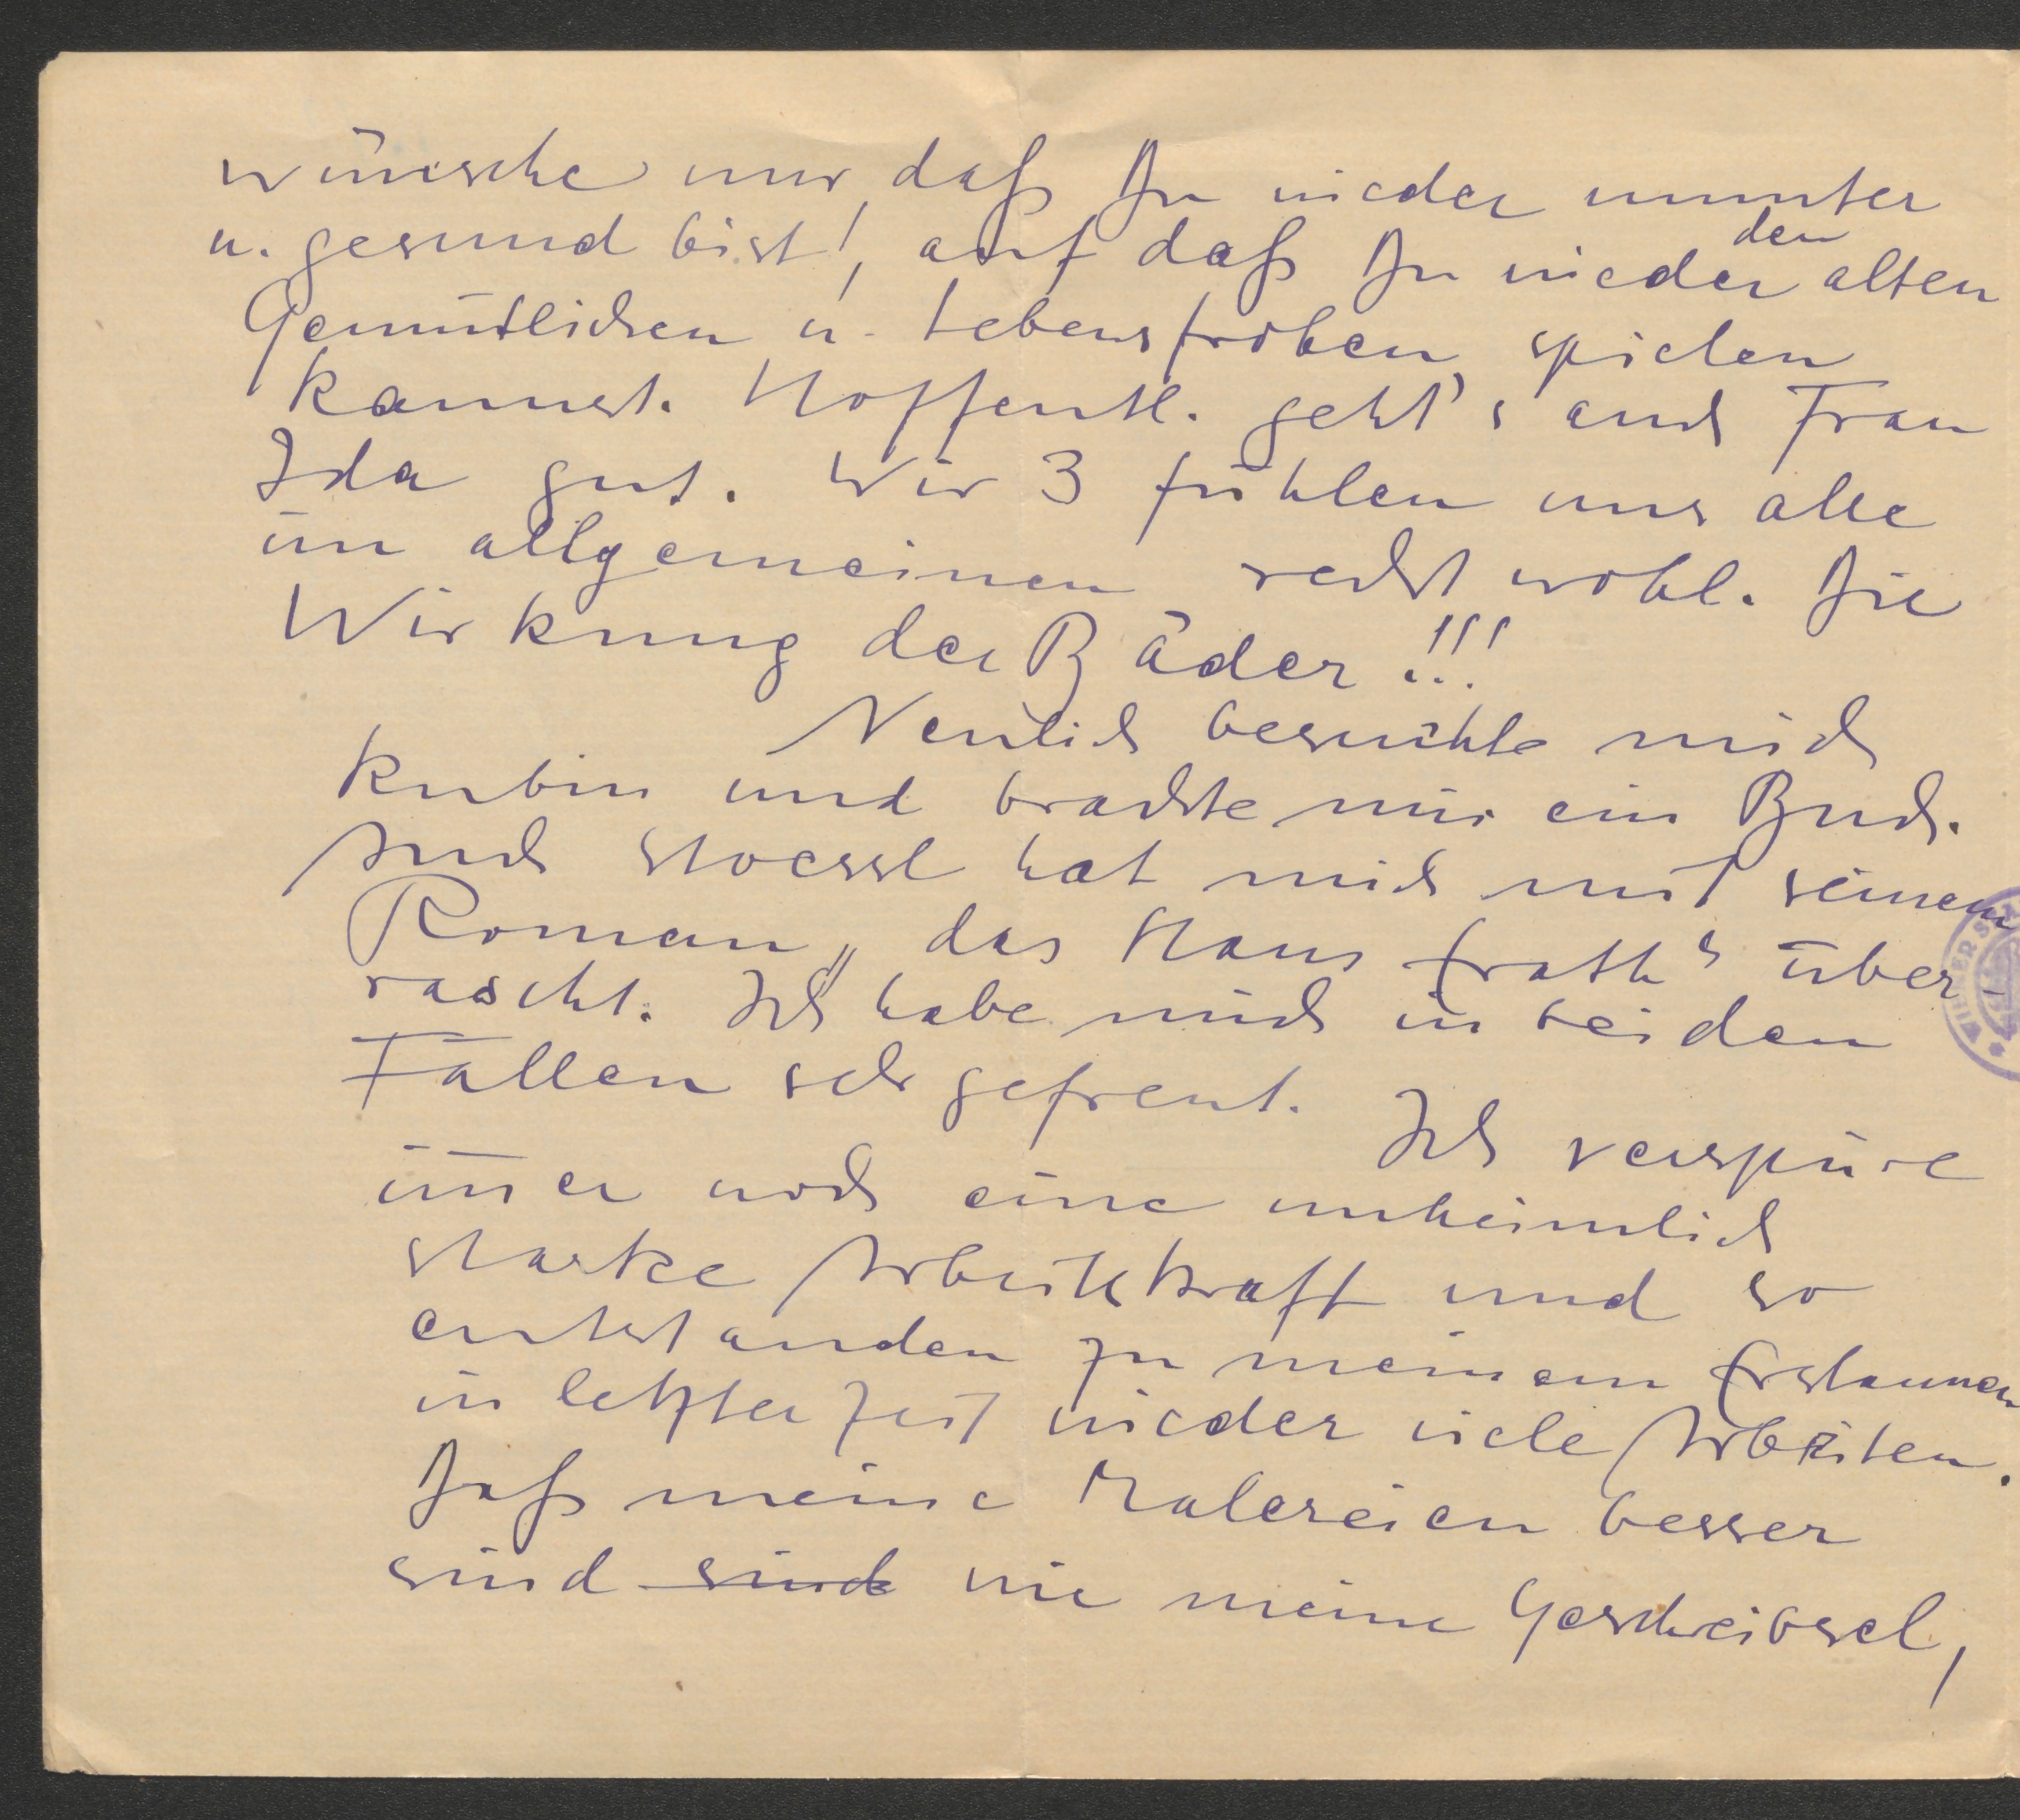 wünsche nur, daß Du wieder munter
u. gesund bist!, auf daß Du wieder den alten
Gemütlichen u. Lebensfrohen spielen
kannst. Hoffentl. geht's auch Frau
Ida gut. Wir 3 fühlen uns alle
im allgemeinen recht wohl. Die
Wirkung der Bäder!!!
Neulich besuchte mich
Kubin und brachte mir ein Buch.
Auch Stoessl hat mich mit seinem
Roman „das Haus Erath" über-
rascht. Ich habe mich in beiden
Fällen sehr gefreut.
Ich verspüre
im̅er noch eine unheimlich
starke Arbeitskraft und so
entstanden zu meinem Erstaunen
in letzter Zeit wieder viele Arbeiten.
Daß meine Malereien besser
sind sind wie meine Geschreibsel,
WIENER